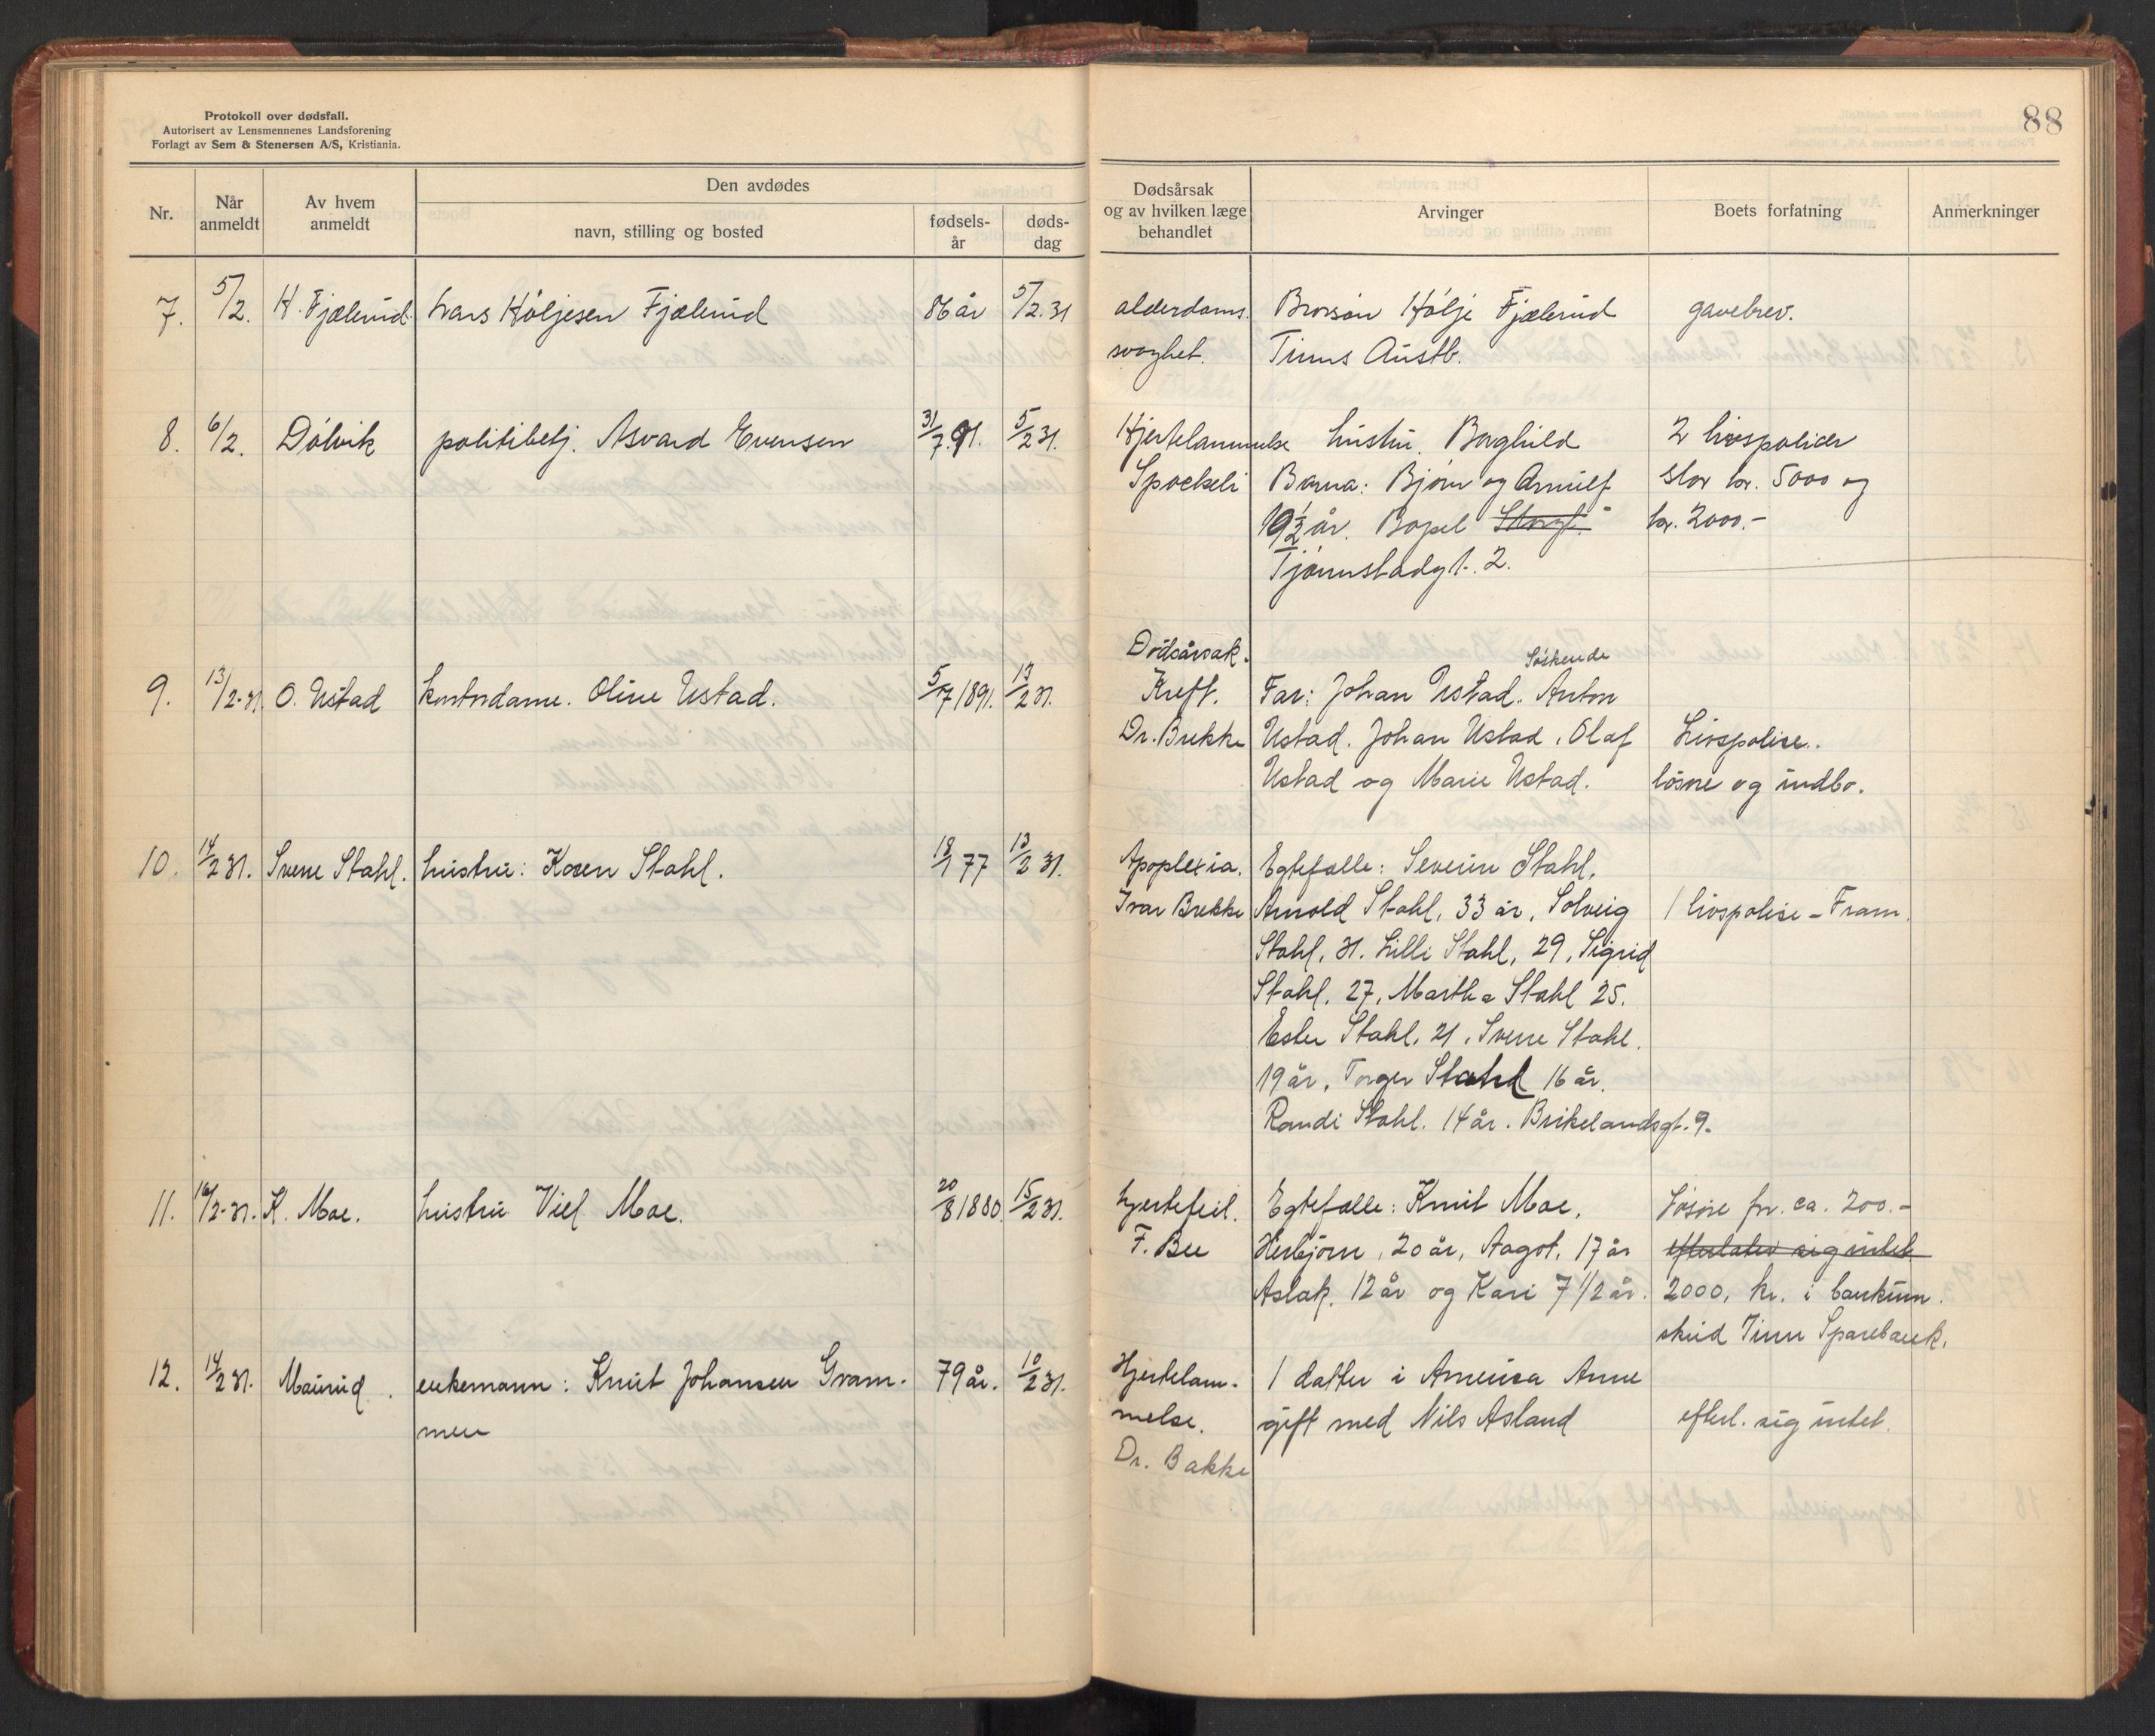 Protokoll over dødsfall.
Autorisert av Lensmennenes Landsforening
Forlagt av Sem & Stenersen A/S, Kristiania.
88
Nr.
Når anmeldt
Av hvem anmeldt
Den avdødes
navn, stilling og bosted
fødsels-år
døds-dag
Dødsårsak
og av hvilken læge
behandlet
Arvinger
Boets forfatning
Anmerkninger
7. 5/2. H. Fjælerud. Lars Höljesen Fjælerud 86 år 5/2.31 alderdoms. Brorsøn Hølje Fjælerud gavebrev.
svaghet. Tinns Austb.
8. 6/2. Dölvik politibetj. Asvard Evensen 31/7.91. 5/2 31. Hjertelammelse hustru. Borghild 2 livspolicer
Spockeli Barna: Bjørn og Arnulf stor kr. 5000 og
19 1/2 år. Bopel Storgt. kr. 2000.-
Tjønnstadgt. 2.
Dödsårsak.
9. 13/2-31. O. Ustad kontordame. Oline Ustad. 5/7 1891. 13/2 31. Kreft. Far: Johan Ustad. Söskende Anton
Dr. Brekke Ustad. Johan Ustad, Olaf Livspolise.
Ustad og Marie Ustad. lösøre og indbo.
10. 14/2 31. Sverre Stahl. hustru: Karen Stahl. 18/1 77 13/2 31. Apoplexia. Egtefælle: Severin Stahl,
Ivar Brekke Arnold Stahl, 33 år, Solveig 1 livspolise - Fram.
Stahl, 31. Lilli Stahl, 29, Sigrid
Stahl, 27, Martha Stahl 25.
Ester Stahl, 21, Sverre Stahl.
19 år, Torger Stahl 16 år.
Randi Stahl. 14 år. Brikelandsgt. 9.
11. 16/2-31. K. Moe. hustru Viel Moe. 20/8 1880. 15/2 31. hjertefeil. Egtefælle: Knut Moe, Løsøre for ca. 200.-
F. Bee Herbjörn, 20 år, Aagot, 17 år efterlater sig intet
Aslak, 12 år og Kari 7 1/2 år. 2000, kr. i bankinn
skud Tinn Sparebank.
12. 14/2 31. Maurud. enkemann: Knut Johansen Gram- 79 år. 10/2 31. Hjertelam- 1 datter i America Anne
men melse. gift med Nils Asland efterl. sig intet.
Dr. Bakke